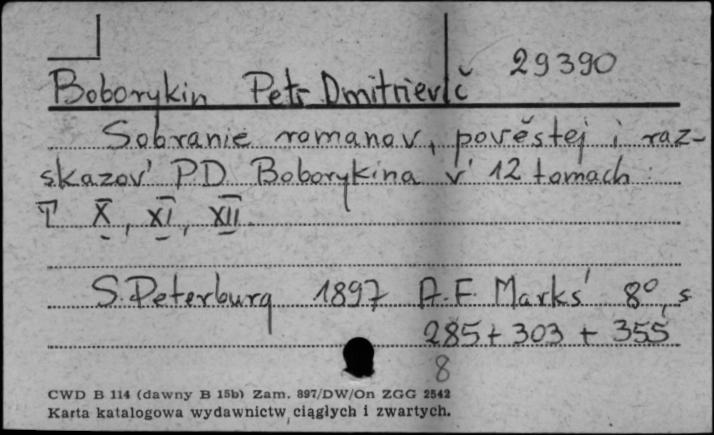 29390
Boborykin Petr Dmitrievič
Sobranie romanov, pověstej i raz-
skazov' P.D. Boborykina v' 12 tomach
T X, XI, XII.
S. Peterburg 1897 A.F. Marks' 8°, s
285 + 303 + 355
8
CWD B 114 (dawny B 15b) Zam. 897/DW/On ZGG 2542
Karta katalogowa wydawnictw ciągłych i zwartych.